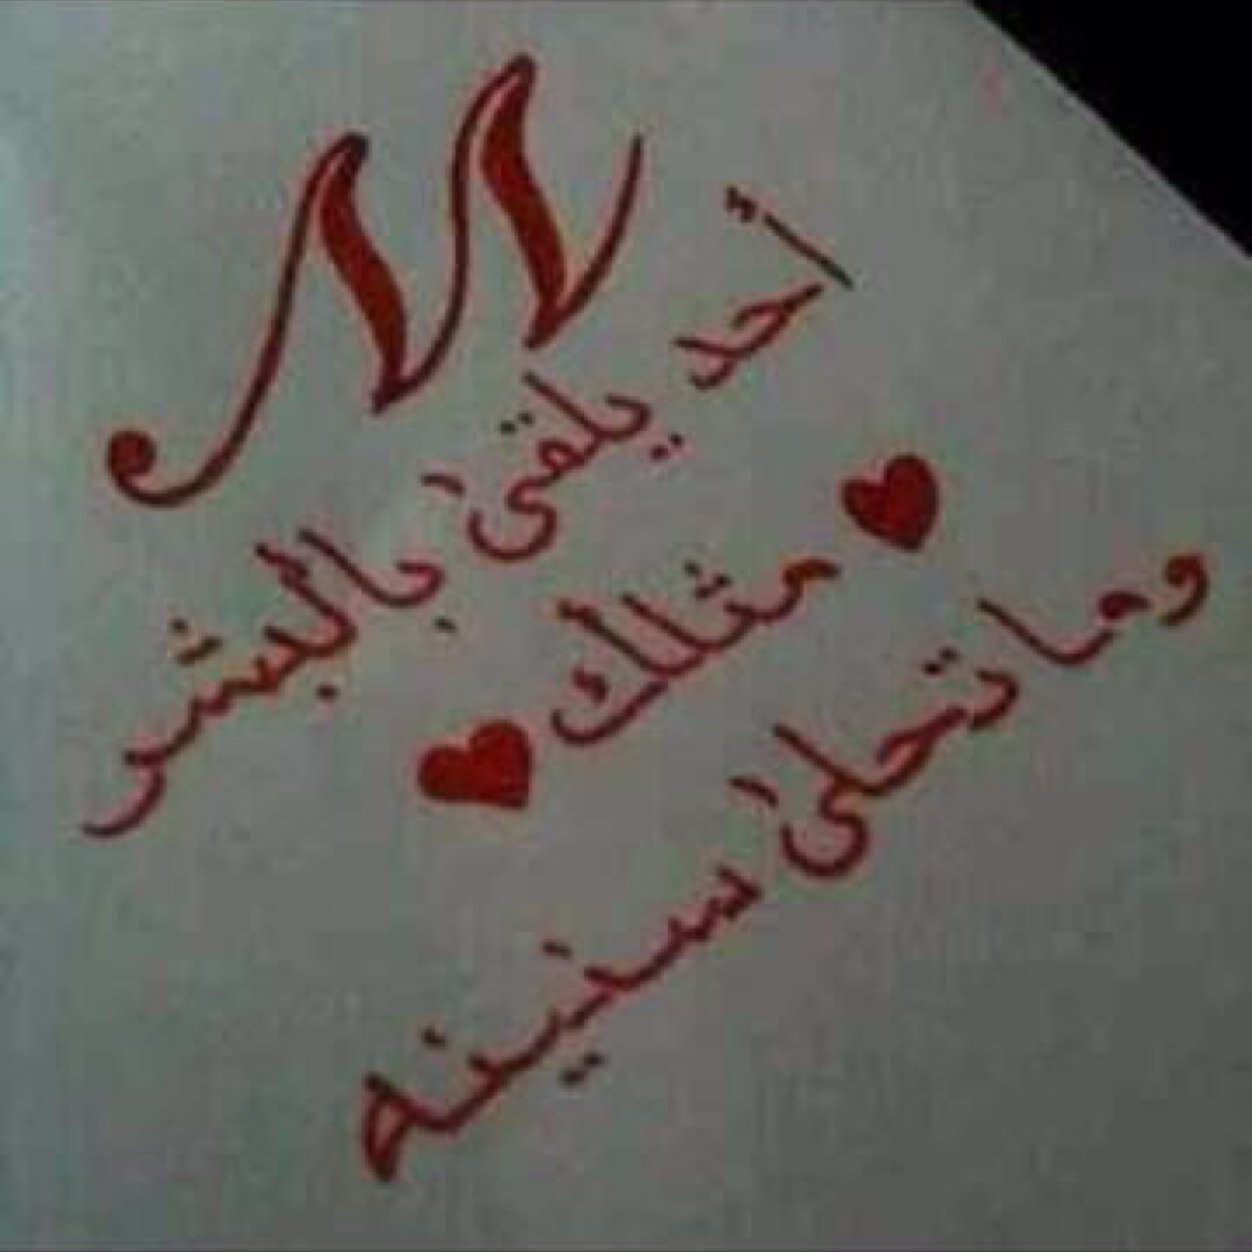 M
أحد يلقىٰ بالبشر
مثلك
وما تحلىٰ سنينه